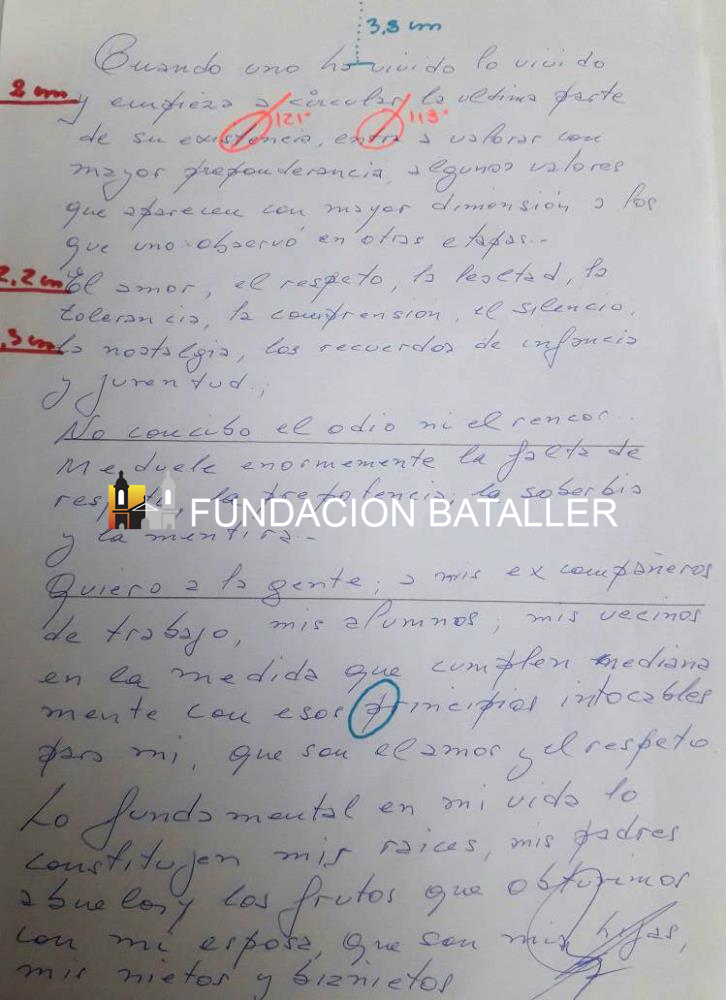 3,8 cm
Cuando uno ha vivido lo vivido
2 cm
y empieza a circular la ultima parte
121° 113°
de su existencia, entra a valorar con
mayor preponderancia, algunos valores
que aparecen con mayor dimensión a los
que uno observó en otras etapas..
2,2 cm
El amor, el respeto, la lealtad, la
tolerancia, la comprensión, el silencio,
,3 cm
la nostalgia, los recuerdos de infancia
y juventud.,
No concibo el odio ni el rencor...
Me duele enormemente la falta de
respeto, la prepotencia, la soberbia
FUNDACION BATALLER
y la mentira.-
Quiero a la gente; a mis ex compañeros
de trabajo, mis alumnos; mis vecinos
en la medida que cumplen mediana
mente con esos principios intocables
para mi, que son el amor y el respeto.
Lo fundamental en mi vida lo
constituyen mis raices, mis padres
abuelos y los frutos que obtuvimos
con mi esposa, que son mis hijas,
mis nietos y biznietos